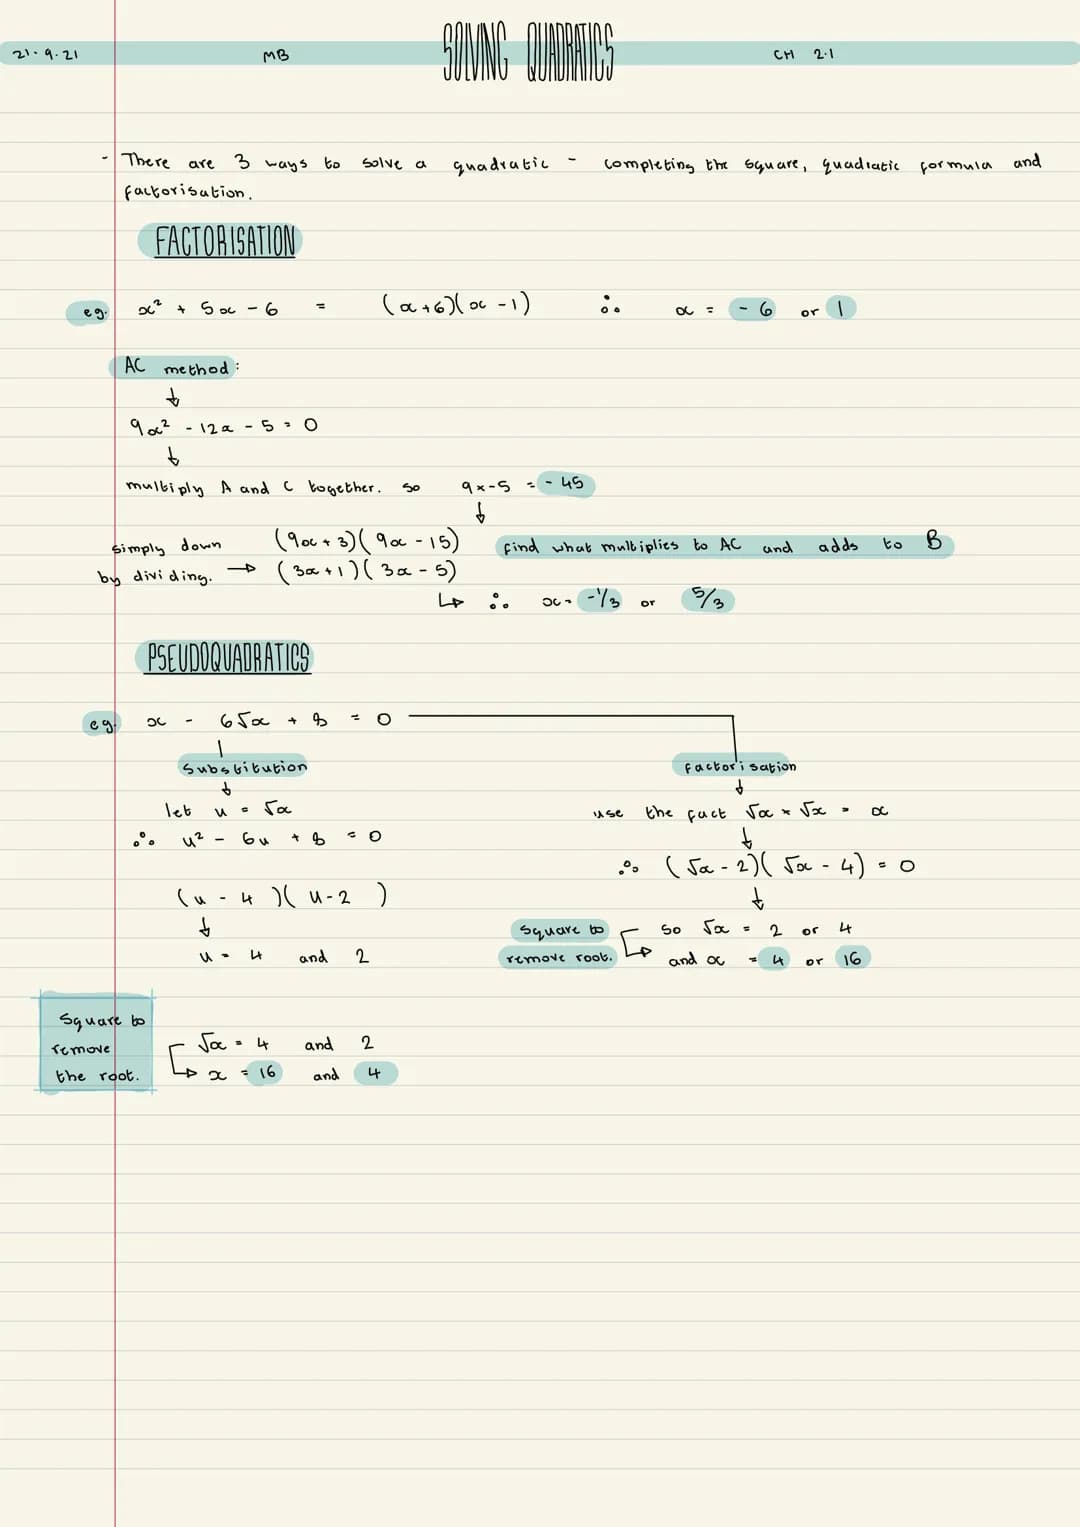 21.9.21 MB SOLVING QUADRATICS CH 2.1
- There are 3 ways to solve a quadratic - completing the square, quadratic formula and
factorisation.
FACTORISATION
eg. x² + 5x - 6 = (x+6)(x-1) ∴ x = -6 or 1
AC method:
↓
9x² - 12x - 5 = 0
↓
multiply A and C together. so 9x-5 = -45
↓
simply down (9x + 3)(9x - 15) find what multiplies to AC and adds to B
by dividing. → (3x+1)(3x-5)
↳ ∴ x = -1/3 or 5/3
PSEUDOQUADRATICS
eg. x - 6√x + 8 = 0
Substitution
↓
let u = √x
∴ u² - 6u + 8 = 0
(u - 4)(u-2)
↓
u = 4 and 2
Square to
remove
the root.
√x = 4 and 2
x = 16 and 4
factorisation
↓
use the fact √x × √x = x
↓
∴ (√x - 2)(√x - 4) = 0
↓
Square to so √x = 2 or 4
remove root. and x = 4 or 16